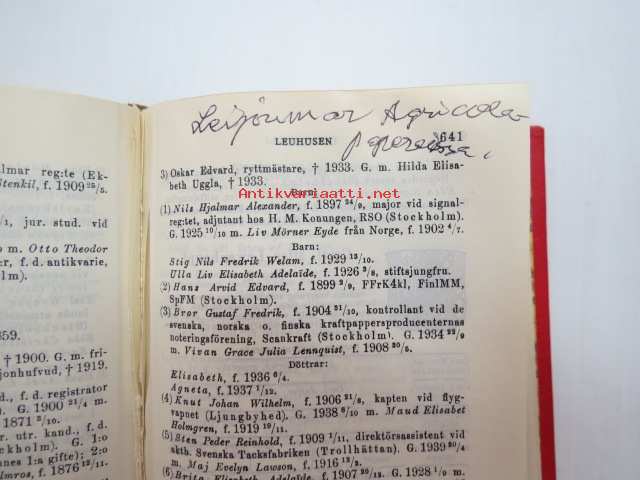 Leijonmar Agricola-
papereissa.
LEUHUSEN 641
3) Oskar Edvard, ryttmästare, † 1933. G. m. Hilda Elisa-
beth Uggla, † 1933.
Barn:
Antikvariaatti.net
(1) Nils Hjalmar Alexander, f. 1897 24/9, major vid signal-
reg:tet, adjutant hos H. M. Konungen, RSO (Stockholm).
G. 1925 10/10 m. Liv Mörner Eyde från Norge, f. 1902 4/7.
Barn:
Stig Nils Fredrik Welam, f. 1929 13/10.
Ulla Liv Elisabeth Adelaïde, f. 1926 3/8, stiftsjungfru.
(2) Hans Arvid Edvard, f. 1899 2/9, FFrK4kl, FinlMM,
SpFM (Stockholm).
(3) Bror Gustaf Fredrik, f. 1904 21/10, kontrollant vid de
svenska, norska o. finska kraftpappersproducenternas
noteringsförening, Scankraft (Stockholm). G. 1934 22/9
m. Vivan Grace Julia Lennquist, f. 1908 20/5.
Döttrar:
Elisabeth, f. 1936 6/4.
Agneta, f. 1937 1/12.
(4) Knut Johan Wilhelm, f. 1906 21/8, kapten vid flyg-
vapnet (Ljungbyhed). G. 1938 6/10 m. Maud Elisabet
Holmgren, f. 1919 19/11.
(5) Sten Peder Reinhold, f. 1909 1/11, direktörsassistent vid
aktb. Svenska Tacksfabriken (Trollhättan). G. 1939 20/4
m. Maj Evelyn Lawson, f. 1916 13/2.
(6) Brita Elisabet Adelaïde, f. 1907 20/12. G. 1928 1/9 m.
lmar reg:te (Ek-
Stenkil, f. 1909 25/5.
/1, jur. stud. vid
o m. Otto Theodor
er, f. d. antikvarie,
lm).
859.
† 1900. G. m. fri-
jonhufvud, † 1919.
d., f. d. registrator
). G. 1900 21/4 m.
1871 2/10.
r. utr. kand., f. d.
ckholm). G. 1:o
nes 1:a gifte); 2:o
lmros, f. 1876 12/11.